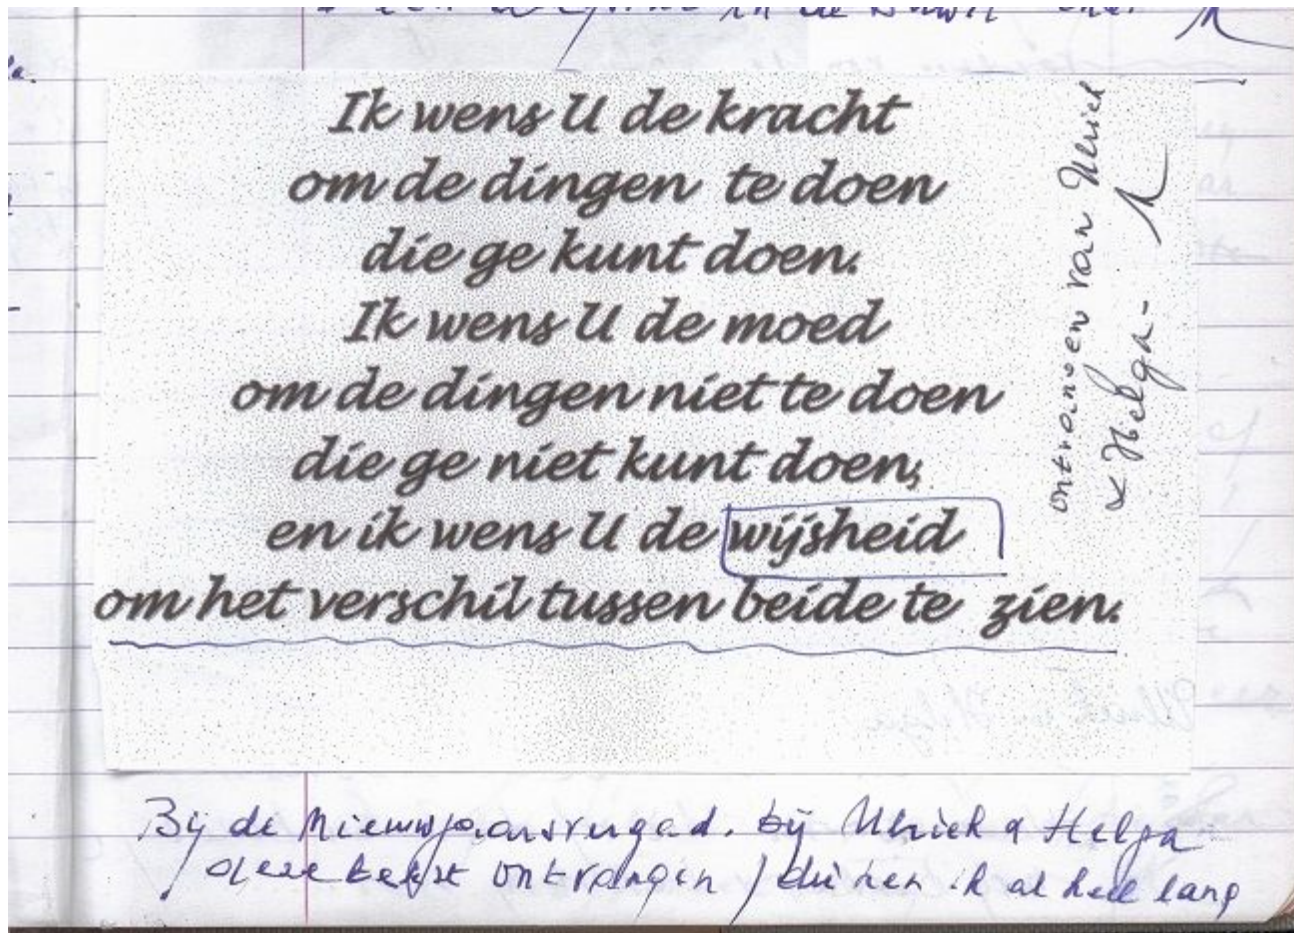 in de
Ik wens U de kracht
om de dingen te doen
die ge kunt doen.
Ik wens U de moed
om de dingen niet te doen
die ge niet kunt doen;
en ik wens U de wijsheid
om het verschil tussen beide te zien.
ontvangen van Ulrich
& Helga -
Bij de Nieuwjaarsvergad. bij Ulrich & Helga
deze tekst ontvangen / die ken ik al heel lang